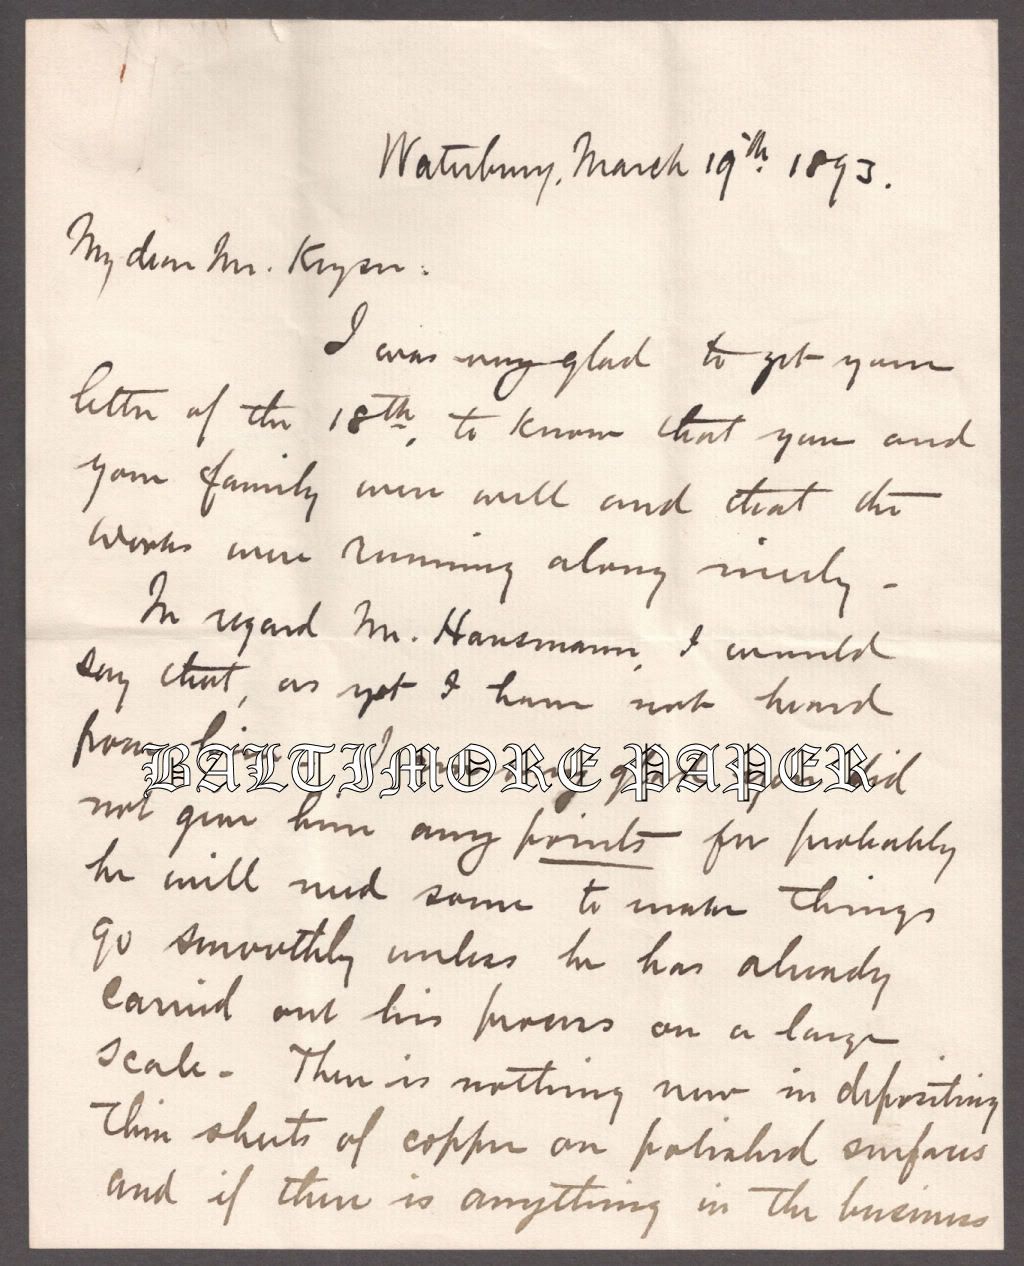 Waterbury, March 19th. 1893.
My dear Mr. Keyser:
I was very glad to get your
letter of the 18th, to know that you and
your family were well and that the
works were running along nicely -
In regard Mr. Hansmann, I would
say that, as yet I have not heard
from him. I am very glad you did
BALTIMORE PAPER
not give him any points for probably
he will need some to make things
go smoothly unless he has already
carried out his process on a large
scale - There is nothing new in depositing
thin sheets of copper on polished surfaces
and if there is anything in the business